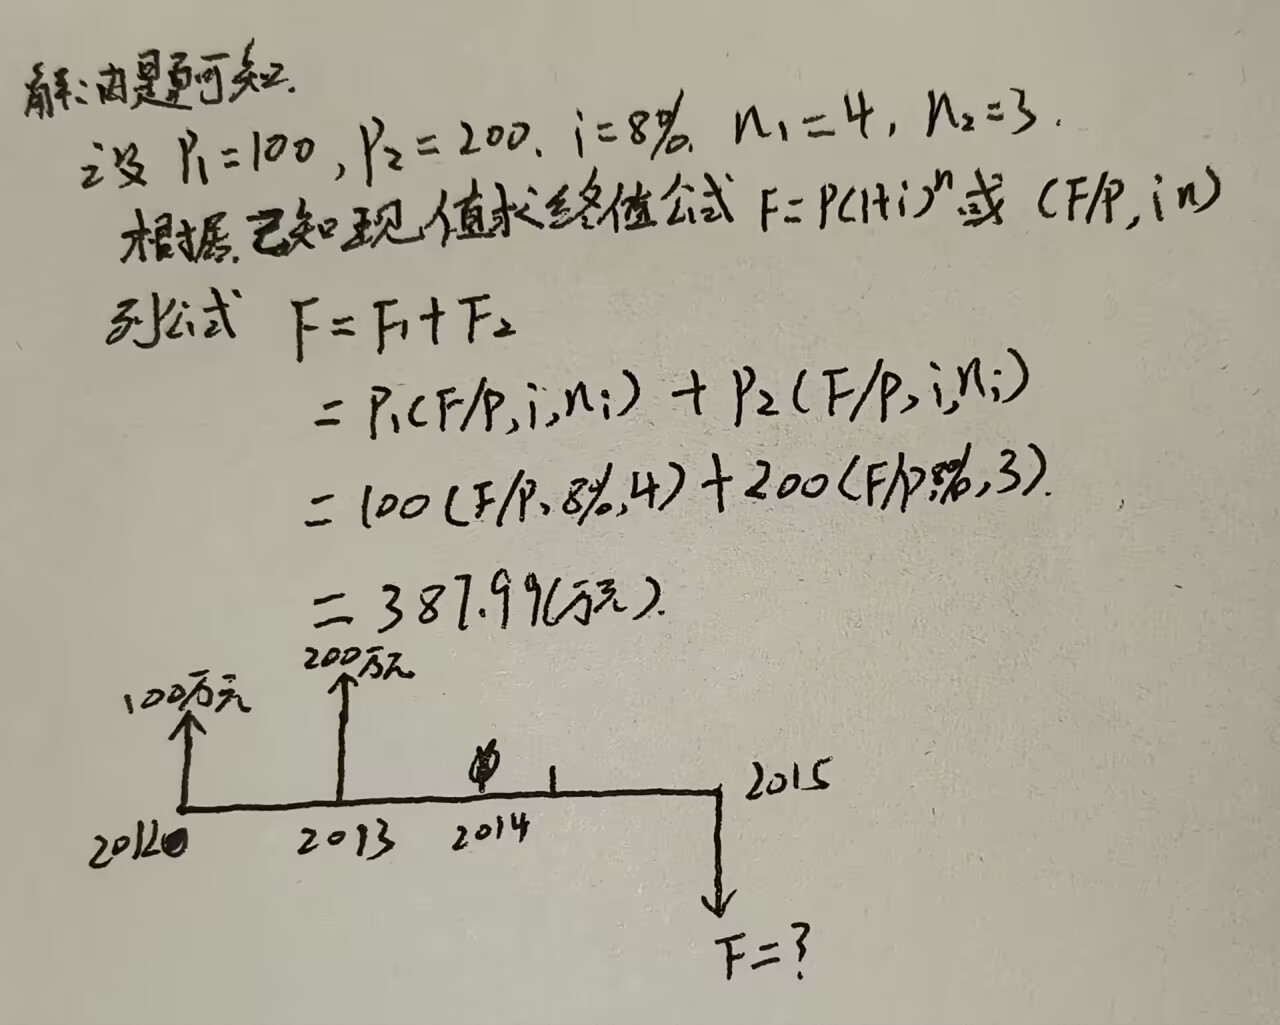 解:由题可知.
设 P₁=100, P₂=200. i=8%. n₁=4, n₂=3.
根据已知现值求终值公式 F=P(1+i)ⁿ或 (F/P, i n)
列公式 F=F₁+F₂
=P₁(F/P,i,nᵢ)+P₂(F/P,i,nᵢ)
=100(F/P、8%,4)+200(F/P,8%,3).
=387.99(万元).
200万元
100万元
2015
2012 2013 2014
F=?